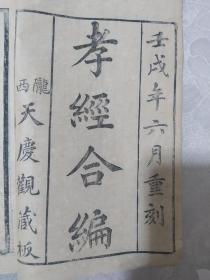 壬戌年六月重刻
孝經合編
隴西天慶觀藏板